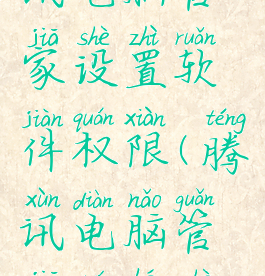 jiā shè zhì ruǎn
家设置软
jiàn quán xiàn téng
件权限(腾
xùn diàn nǎo guǎn
讯电脑管